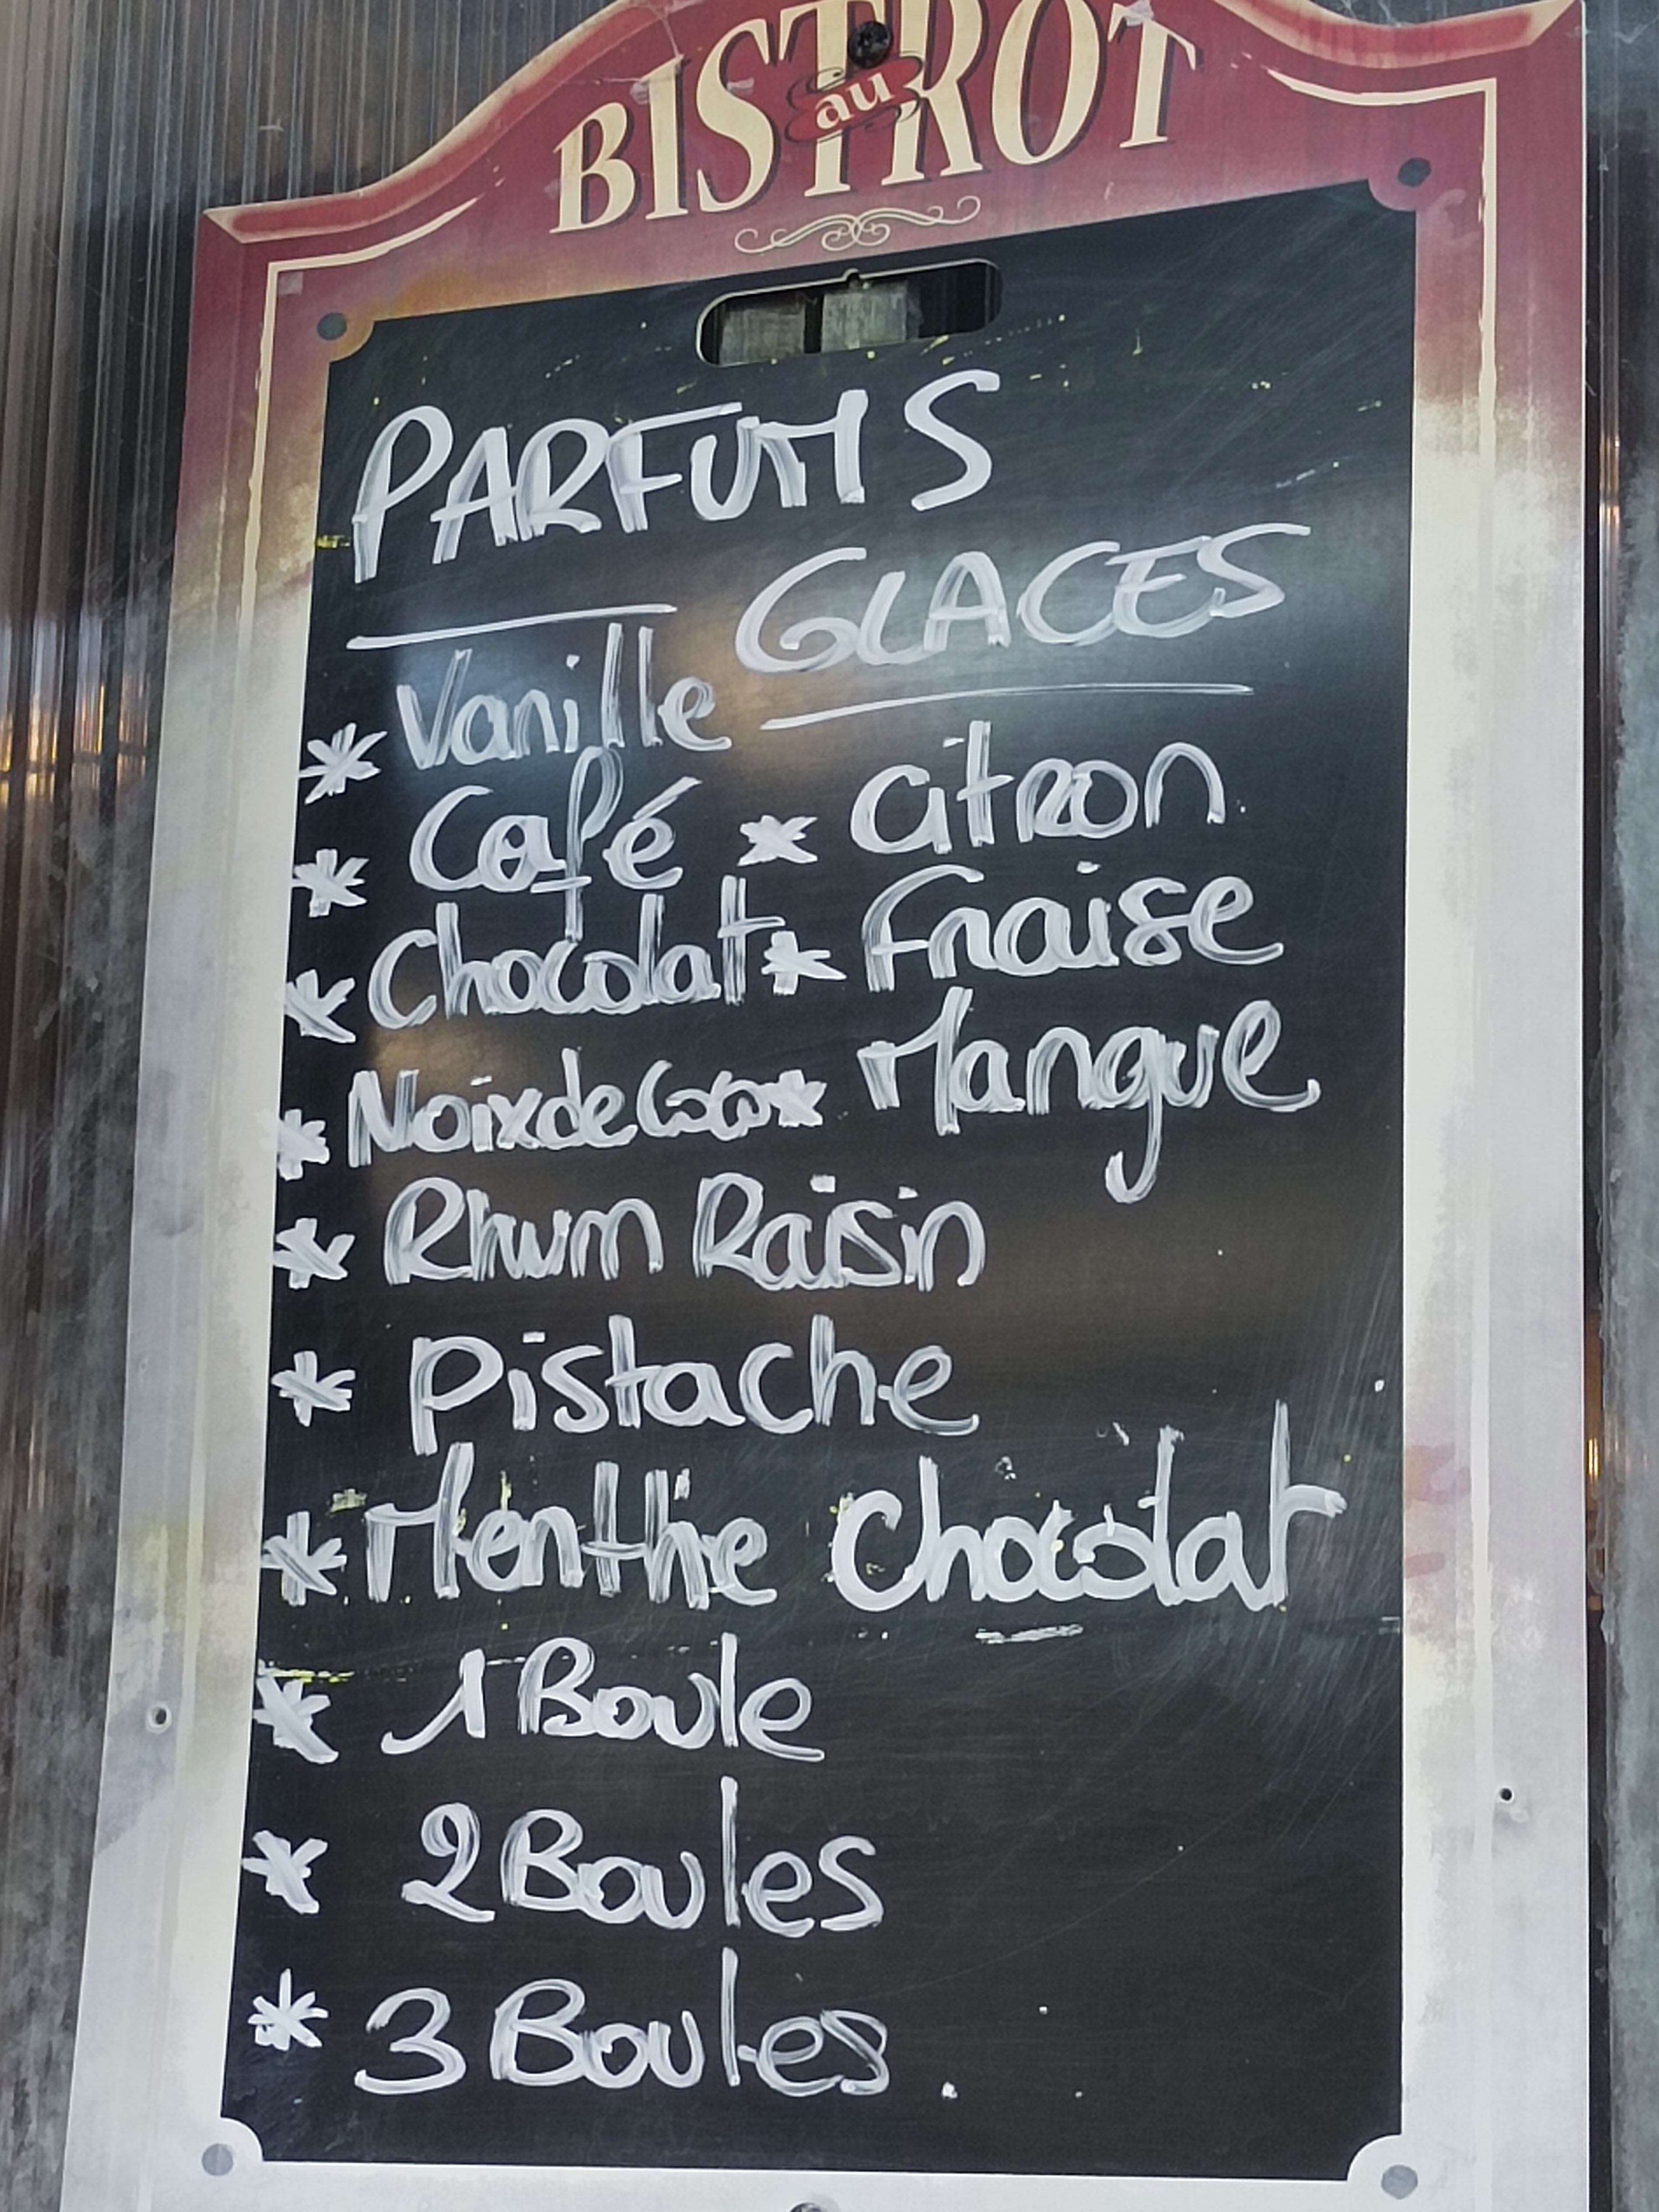 au
BISTROT
PARFUMS
GLACES
* Vanille
* Café * Citron
* Chocolat * Fraise
* Noix de Coco * Mangue
* Rhum Raisin
* Pistache
* Menthe Chocolat
* 1 Boule
* 2 Boules
* 3 Boules.